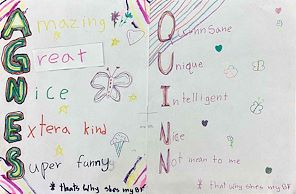 Amazing
Great
Nice
Extera kind
Super funny
* thats why shes my BF
QuinnSane
Unique
Intelligent
Nice
Not mean to me
* thats why shes my BF